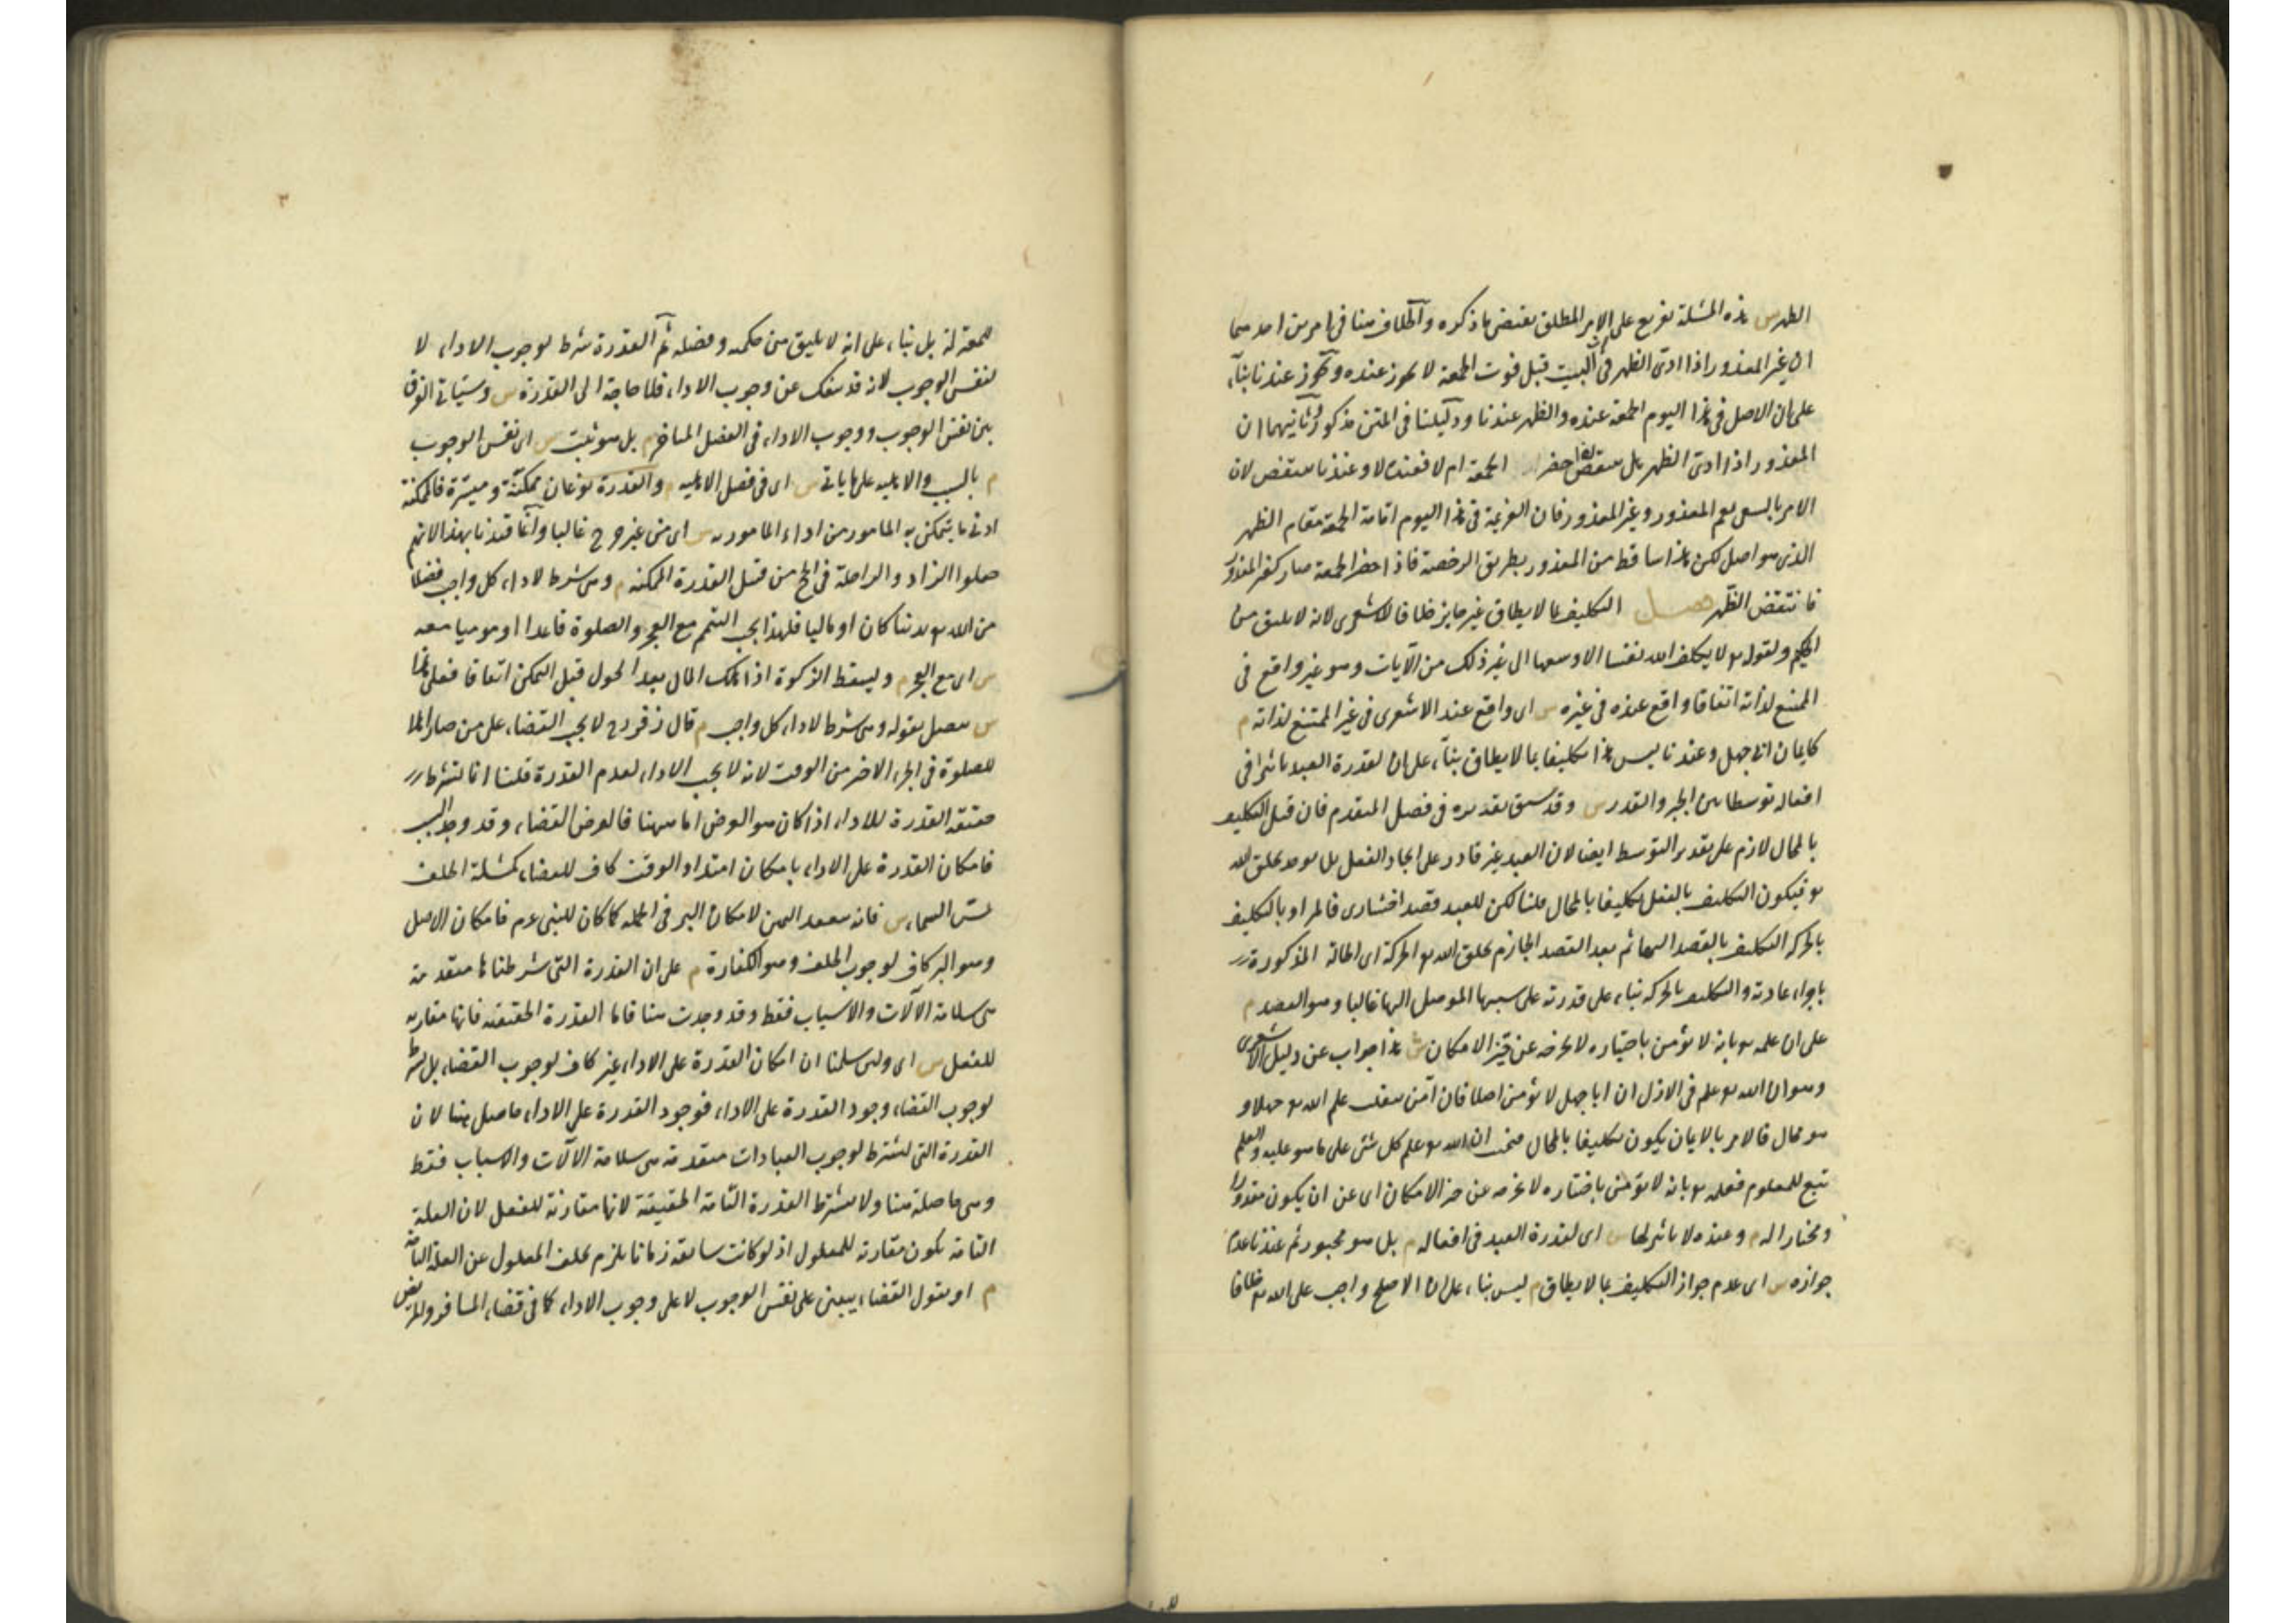 الظهر س هذه المسئلة تفريع على ان الامر المطلق يقتضى ما ذكره والخلاف هنا فى امرين احدهما
ان غير المعذور اذا ادى الظهر فى البيت قبل فوت الجمعة لا يجوز عنده ويجوز عندنا بناء
على ان الاصل فى هذا اليوم الجمعة عنده والظهر عندنا ودليلنا فى المتن مذكور وثانيهما ان
المعذور اذا ادى الظهر هل ينتقض اذا حضر الجمعة ام لا فعنده لا وعندنا ينتقض لان
الامر بالسعى يعم المعذور وغير المعذور فان العزيمة فى هذا اليوم اقامة الجمعة مقام الظهر
الذى هو اصل لكن هذا ساقط من المعذور بطريق الرخصة فاذا حضر الجمعة صار كغير المعذور
فانتقض الظهر فصل التكليف بما لا يطاق غير جايز خلافا للاشعرى لانه لا يليق من
الحكيم ولقوله تع لا يكلف الله نفسا الا وسعها الى غير ذلك من الآيات وهو غير واقع فى
الممتنع لذاته اتفاقا واقع عنده فى غيره س اى واقع عند الاشعرى فى غير الممتنع لذاته م
كايمان ابى جهل وعندنا ليس هذا تكليفا بما لا يطاق بناء على ان لقدرة العبد تاثيرا فى
افعاله توسطا بين الجبر والقدر س وقد سبق تقديره فى فصل المتقدم فان قيل التكليف
بالمحال لازم على تقدير التوسط ايضا لان العبد غير قادر على ايجاد الفعل بل يوجد بخلق الله
تع فيكون التكليف بالفعل تكليفا بالمحال قلنا لكن للعبد قصد اختيارى فالمراد بالتكليف
بالحركة التكليف بالقصد اليها ثم بعد القصد الجازم يخلق الله تع الحركة اى الحالة المذكورة
باجراء عادته والتكليف بالحركة بناء على قدرته على سببها الموصل اليها غالبا وهو القصد م
على ان علمه تع بانه لا يؤمن باختياره لا يخرجه عن حيز الامكان ش هذا جواب عن دليل الاشعرى
وهو ان الله تع علم فى الازل ان ابا جهل لا يؤمن اصلا فان آمن ينقلب علم الله تع جهلا و
هو محال فالامر بالايمان يكون تكليفا بالمحال فنجيب ان الله تع علم كل شئ على ما هو عليه والعلم
تبع للمعلوم فعلمه تع بانه لا يؤمن باختياره لا يخرجه عن حيز الامكان اى عن ان يكون مقدورا
ومختارا له م وعنده لا تاثير لها س اى لقدرة العبد فى افعاله م بل هو مجبور ثم عندنا عدم
جوازه س اى عدم جواز التكليف بما لا يطاق م ليس بناء على ان الاصلح واجب على الله تع خلافا
للمعتزلة بل بناء على انه لا يليق من حكمته وفضله ثم القدرة شرط لوجوب الاداء لا
لنفس الوجوب لانه قد ينفك عن وجوب الاداء فلا حاجة الى القدرة س وسيأتى الفرق
بين نفس الوجوب ووجوب الاداء فى الفصل المتاخر م بل هو يثبت س اى نفس الوجوب
م بالسبب والاهلية على ما ياتى س اى فى فصل الاهلية م والقدرة نوعان ممكنة وميسرة فالممكنة
ادنى ما يتمكن به المامور من اداء المامور به س اى من غير حرج غالبا وانما قيدنا بهذا لانهم
جعلوا الزاد والراحلة فى الحج من قبيل القدرة الممكنة م وهى شرط لاداء كل واجب فضلا
من الله تع بدنيا كان او ماليا فلهذا يجب التيمم مع العجز والصلوة قاعدا او موميا معه
س اى مع العجز م ويسقط الزكوة اذا هلك المال بعد الحول قبل التمكن اتفاقا فعلى هذا
س يتصل بقوله وهى شرط لاداء كل واجب م قال زفر رح لا يجب القضاء على من صار اهلا
للصلوة فى الجزء الاخير من الوقت لانه لا يجب الاداء لعدم القدرة قلنا انما تشترط
حقيقة القدرة للاداء اذا كان هو الغرض اما ههنا فالغرض القضاء وقد وجد السبب
فامكان القدرة على الاداء بامكان امتداد الوقت كاف للقضاء كمسئلة الحلف
بمس السماء س فانه ينعقد اليمين لامكان البر فى الجملة كما كان للنبى عم فامكان الاصل
وهو البر كاف لوجوب الخلف وهو الكفارة م على ان القدرة التى شرطناها متقدمة
هى سلامة الآلات والاسباب فقط وقد وجدت هنا فاما القدرة الحقيقية فانها مقارنة
للفعل س اى ولئن سلمنا ان امكان القدرة على الاداء غير كاف لوجوب القضاء بل يشترط
لوجوب القضاء وجود القدرة على الاداء فوجود القدرة على الاداء حاصل هنا لان
القدرة التى تشترط لوجوب العبادات متقدمة هى سلامة الآلات والاسباب فقط
وهى حاصلة هنا ولا يشترط القدرة التامة الحقيقية لانها مقارنة للفعل لان العلة
التامة تكون مقارنة للمعلول اذ لو كانت سابقة زمانا يلزم تخلف المعلول عن العلة التامة
م او نقول القضاء يبتنى على نفس الوجوب لا على وجوب الاداء كما فى قضاء المسافر والمريض